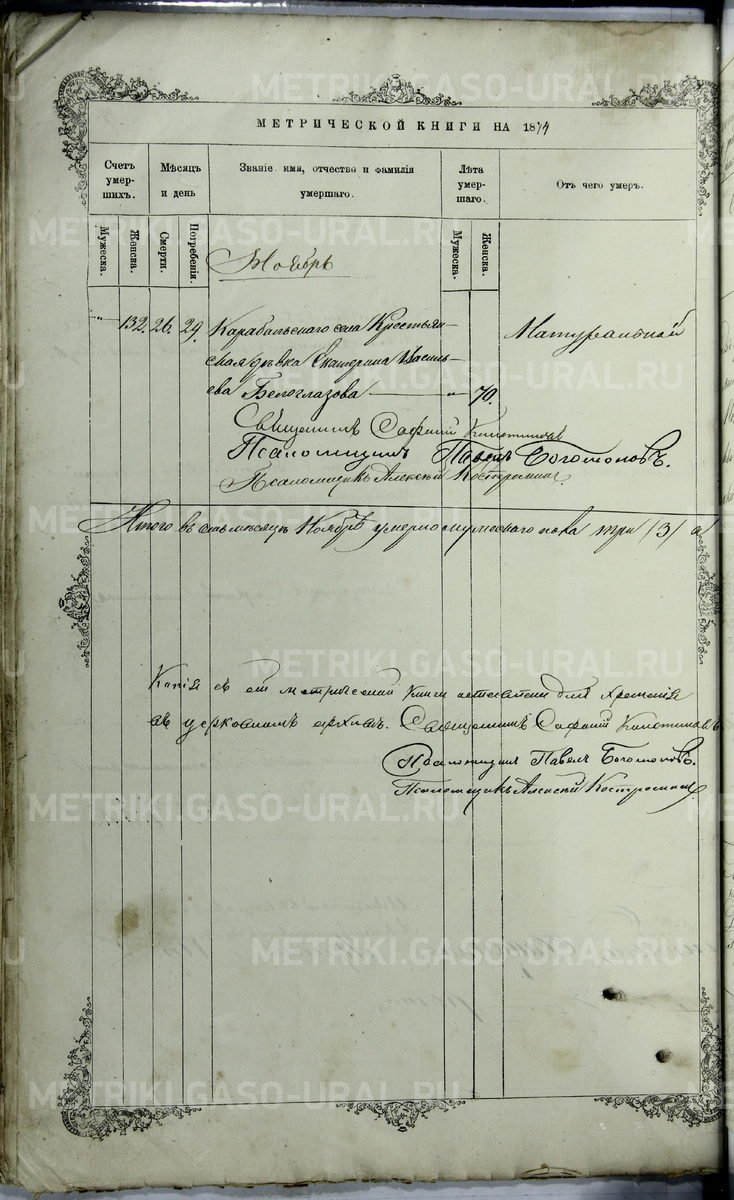 METRIKI.GASO-URAL.RU
МЕТРИЧЕСКОЙ КНИГИ НА 1874
Счетъ умер-шихъ.
Мѣсяцъ и день
Званіе имя, отчество и фамилія умершаго.
Лѣта умер-шаго.
Отъ чего умеръ.
Мужеска.
Женска.
Смерти.
Погребенія.
Мужеска.
Женска.
Ноябрь
" 132. 26. 29. Карабальскаго села Крестьян- Натуральной
ская дѣвка Екатерина Василь-
ева Бѣлоглазова " 70.
Священникъ
Псаломщикъ Павелъ Богомоловъ.
Псаломщикъ Алексѣй Костромин
Итого въ семъ мѣсяцѣ Ноябрѣ умерло мужескаго пола три /3/ а
Копія съ сей метрической Книги оставлена для храненія
въ церковномъ архивѣ. Священникъ
Псаломщикъ Павелъ Богомоловъ.
Псаломщикъ Алексѣй Костромин